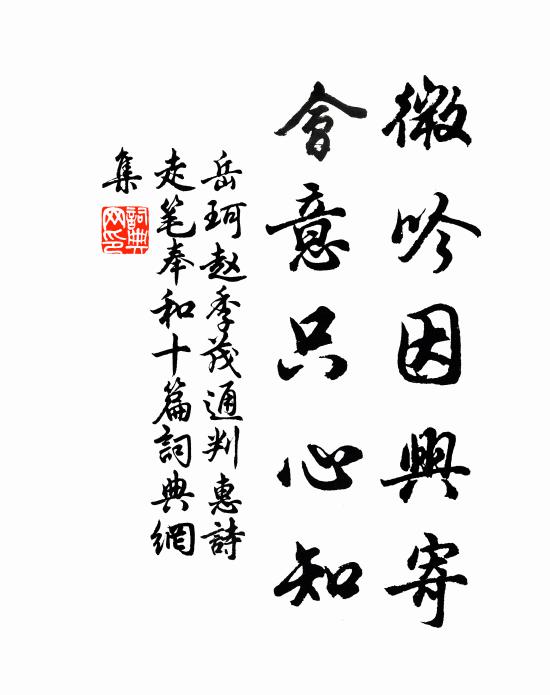 微吟因興寄
會意只心知
岳珂赵季茂通判惠詩
走笔奉和十篇詞典網
集
詞典
网印